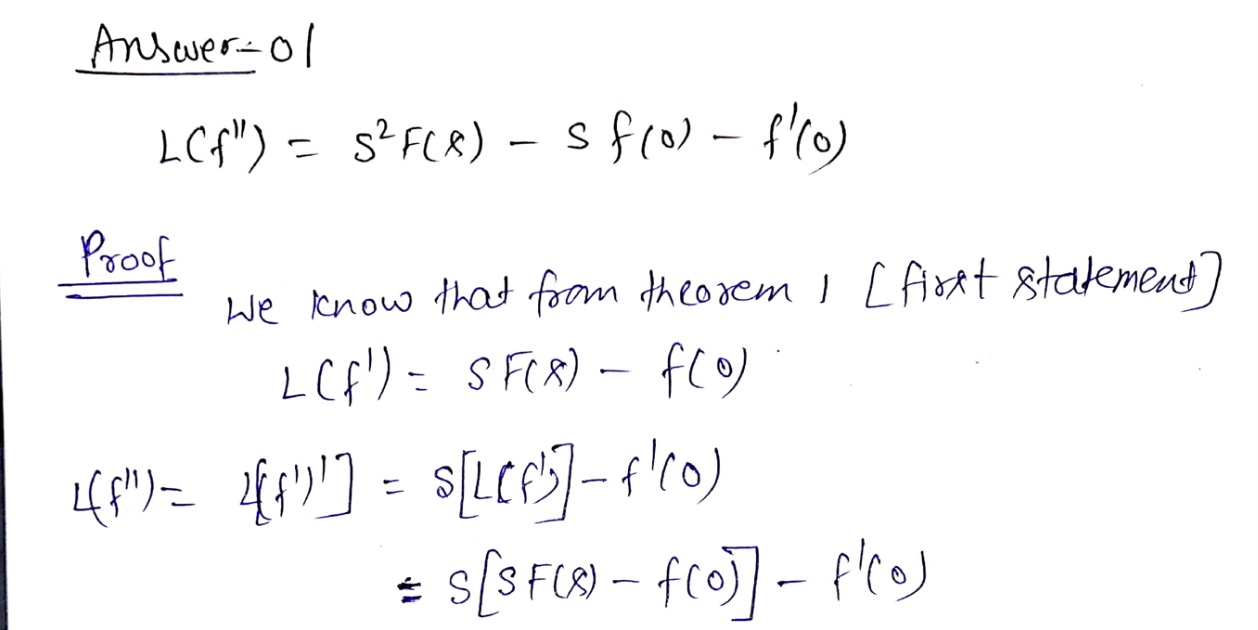 Answer-01
L(f'') = S²F(s) - S f(0) - f'(0)
Proof
We know that from theorem 1 [first statement]
L(f') = S F(s) - f(0)
L(f'') = L[(f')'] = S[L(f')] - f'(0)
= S[S F(s) - f(0)] - f'(0)